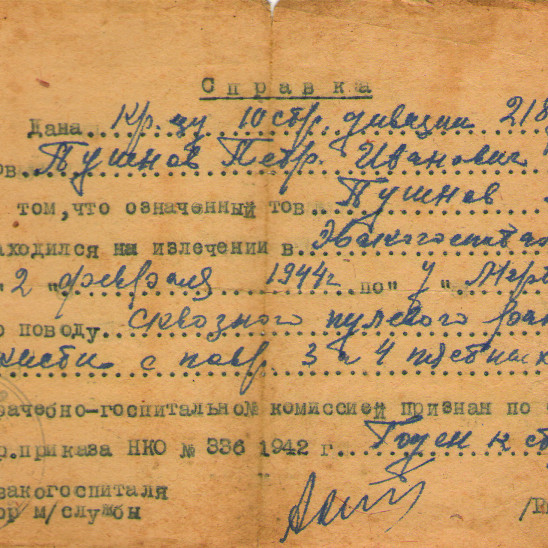 Справка
Дана Кр-цу 10 стр. дивизии 218
ов Пушнов Петр Иванович
том,что означенный тов Пушнов
аходился на излечении в Эвакогоспита
"2" февраля 1944г по" 4 "Мар
о поводу сквозного пулевого ран
кисти с повр. 3 и 4 пястных
рачебно-госпитальной комиссией признан по
р.приказа НКО № 336 1942 г Годен к ст
вакогоспиталя
ор м/службы